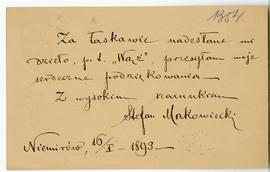 1354
Za łaskawie nadesłane mi
dzieło, p. t. „Wąż”, przesyłam moje
serdeczne podziękowania. —
Z wysokim szacunkiem
Stefan Makowiecki
Niemirów, 16/I - 1893 —